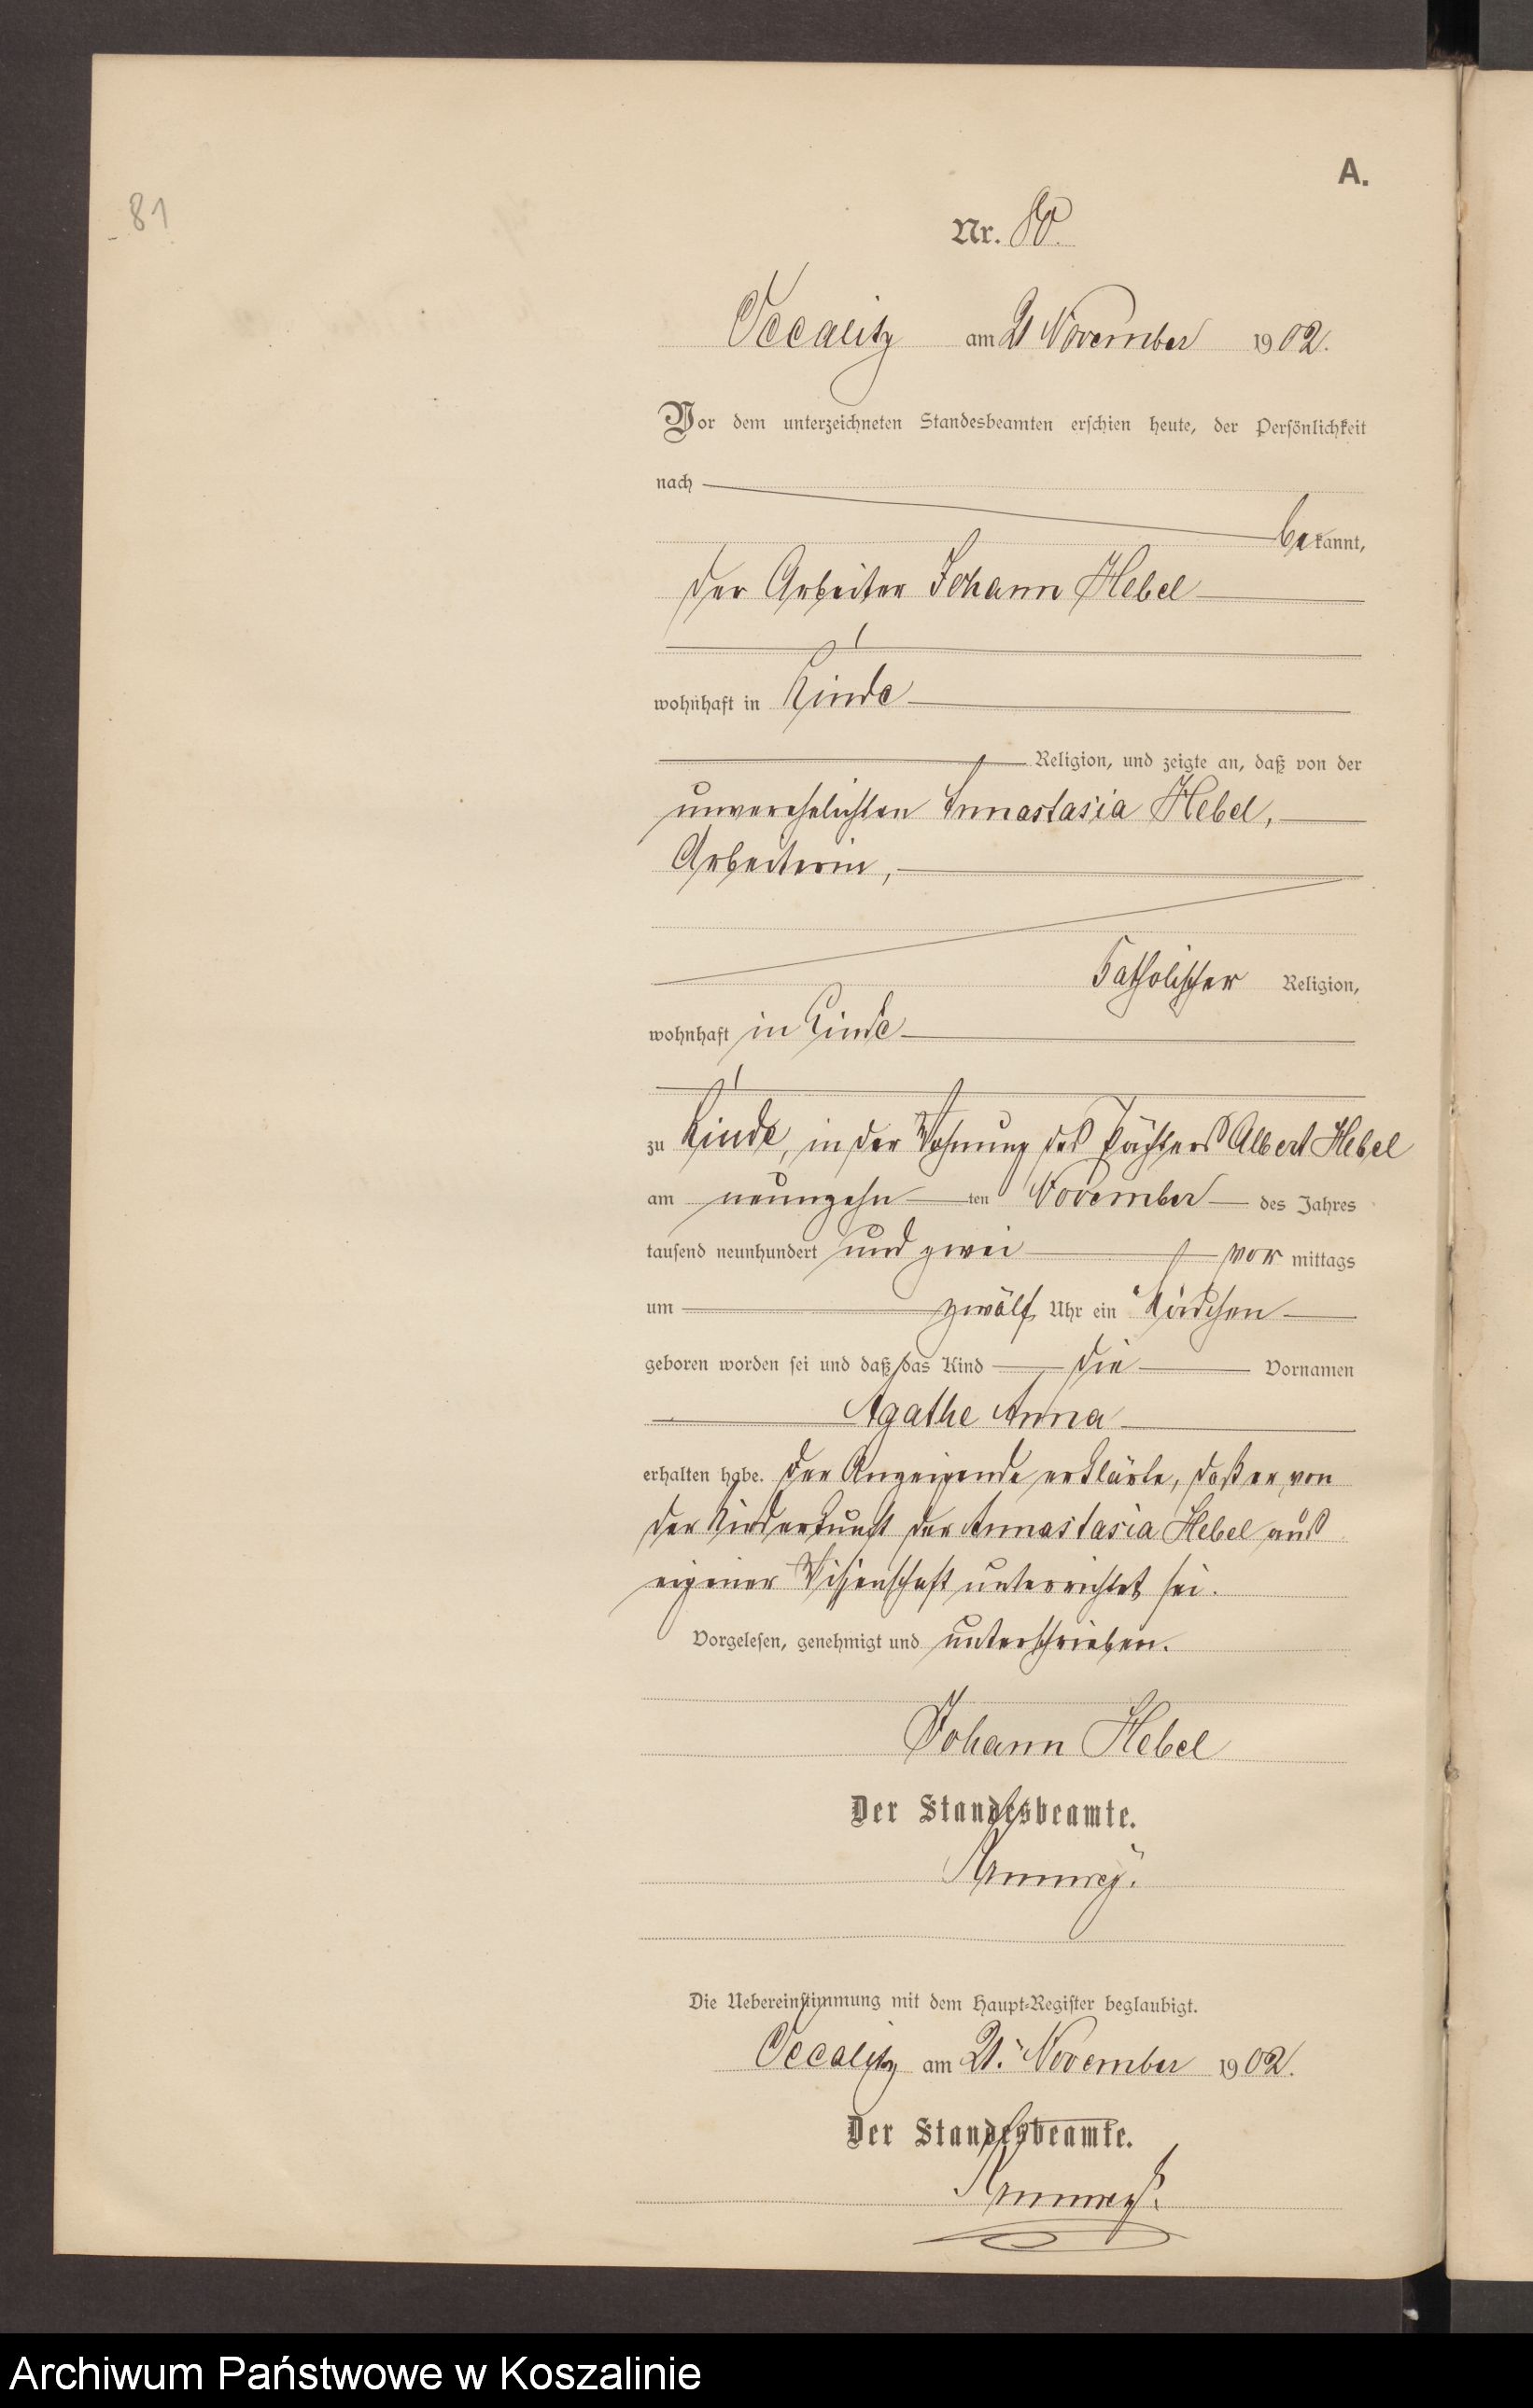 A.
81
Nr. 80.
Occalitz am 21 November 1902.
Vor dem unterzeichneten Standesbeamten erschien heute, der Persönlichkeit
nach
bekannt,
der Arbeiter Johann Hebel
wohnhaft in
Religion, und zeigte an, daß von der
unverehelichten Annastasia Hebel,
Arbeiterin,
katholischer Religion,
wohnhaft in
zu in der Wohnung des Pächters Albert Hebel
am neunzehnten November des Jahres
tausend neunhundert und zwei vormittags
um zwölf Uhr ein Mädchen
geboren worden sei und daß das Kind die Vornamen
Agathe Anna
erhalten habe. Der Anzeigende erklärte, daß er von
der Niederkunft der Annastasia Hebel aus
eigener Wissenschaft unterrichtet sei.
Vorgelesen, genehmigt und unterschrieben.
Johann Hebel
Der Standesbeamte.
Die Uebereinstimmung mit dem Haupt-Register beglaubigt.
Occalitz am 21. November 1902.
Der Standesbeamte.
Archiwum Państwowe w Koszalinie